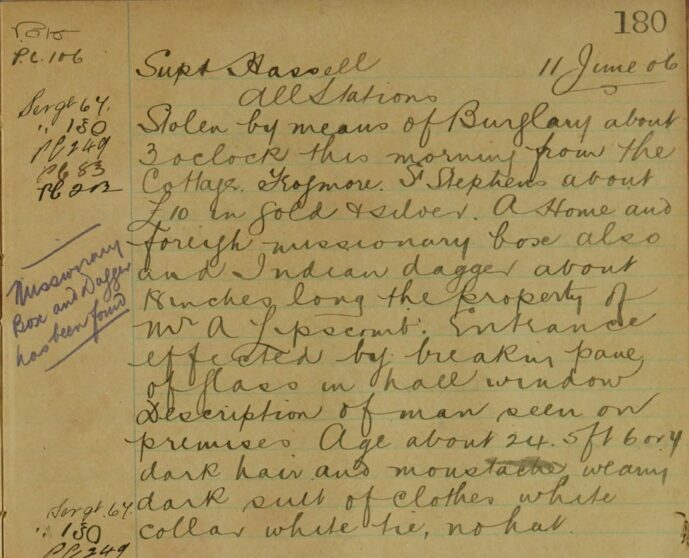 180
P.C. 106
Supt Hassell 11 June 06
All Stations
Sergt 64.
" 130
PC 249
PC 83
PC 202
Stolen by means of Burglary about
3 oclock this morning from the
Cottage. Frogmore. St Stephens about
£10 in gold & silver. A Home and
foreign missionary box also
and Indian dagger about
18 inches long the property of
Mr A Lipscomb. Entrance
effected by breaking pane
of glass in hall window
Description of man seen on
premises Age about 24. 5ft 6 or 7
dark hair and moustache wearing
dark suit of clothes white
collar white tie, no hat.
Missionary
Box and Dagger
has been found
Sergt 64.
" 130
PC 249